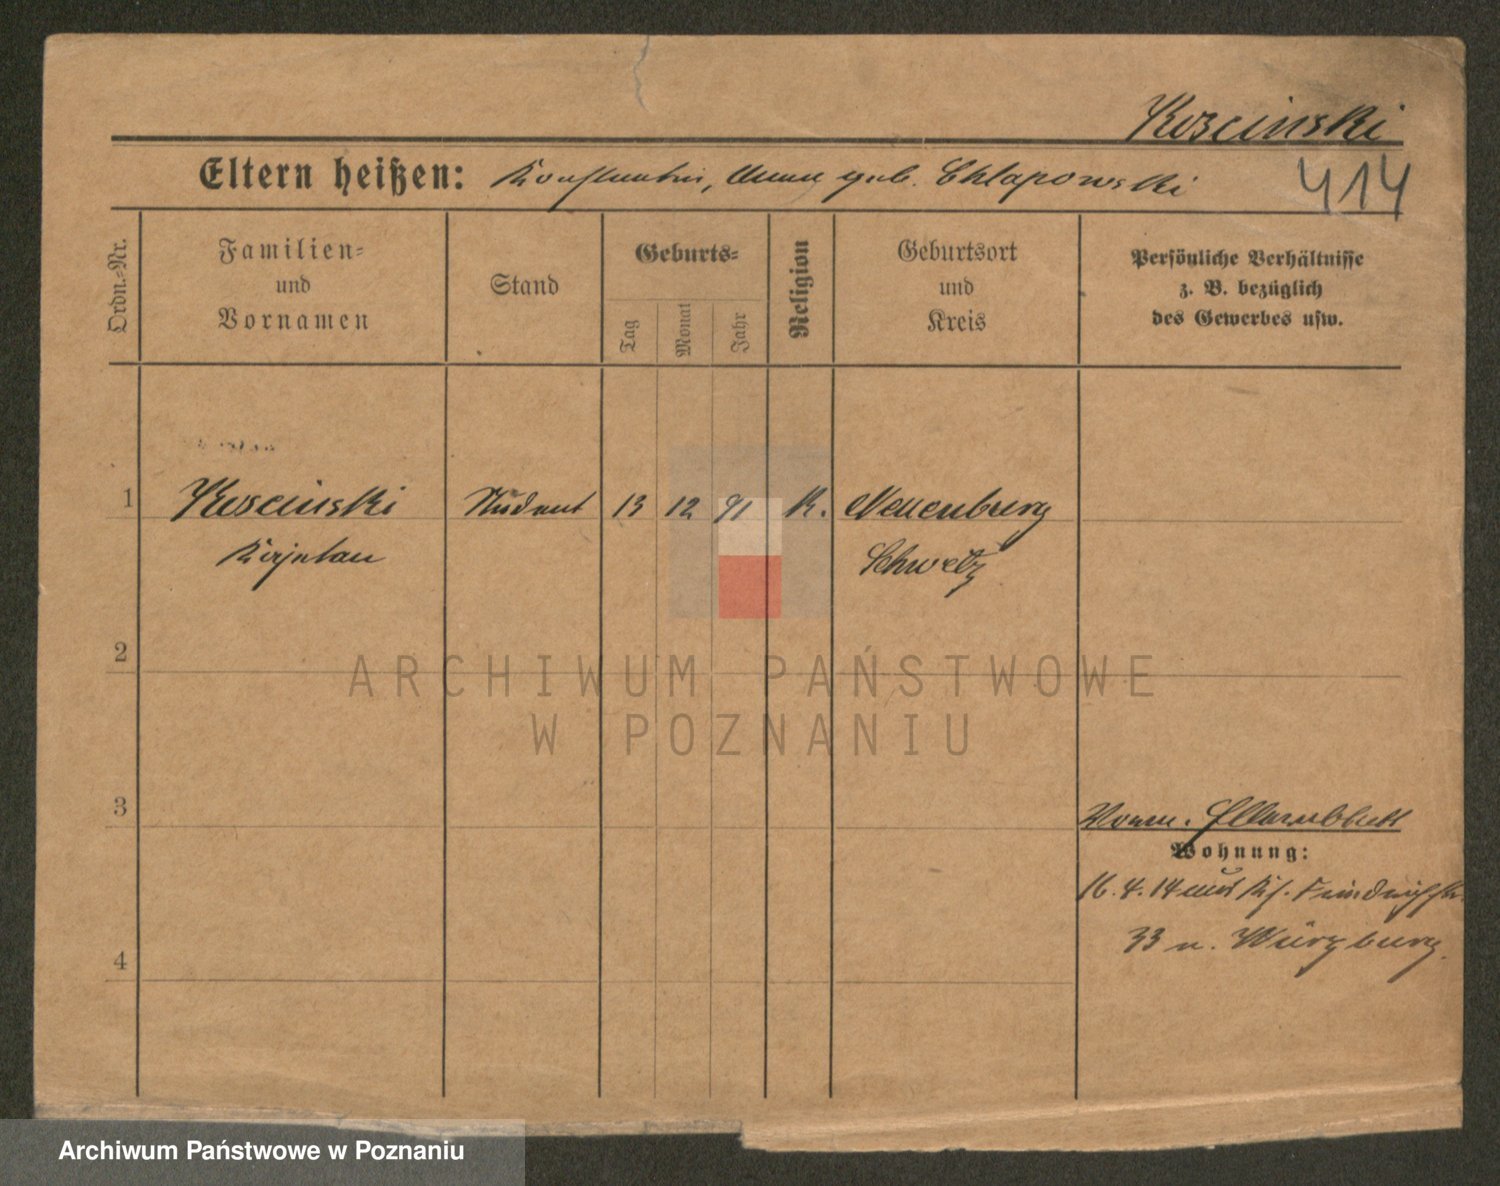 Koscinski
Eltern heißen: Konstantin, Anna geb. Chlapowski
414
Ordn.-Nr.
Familien-
und
Vornamen
Stand
Geburts-
Tag
Monat
Jahr
Religion
Geburtsort
und
Kreis
Persönliche Verhältnisse
z. B. bezüglich
des Gewerbes usw.
1 Koscinski Student 13 12 91 K. Neuenburg
Kajetan Schwetz
2
ARCHIWUM PAŃSTWOWE
W POZNANIU
3
Wohnung:
16.4.14 aus Ks. Friedrichstr.
33 n. Würzburg.
4
Archiwum Państwowe w Poznaniu